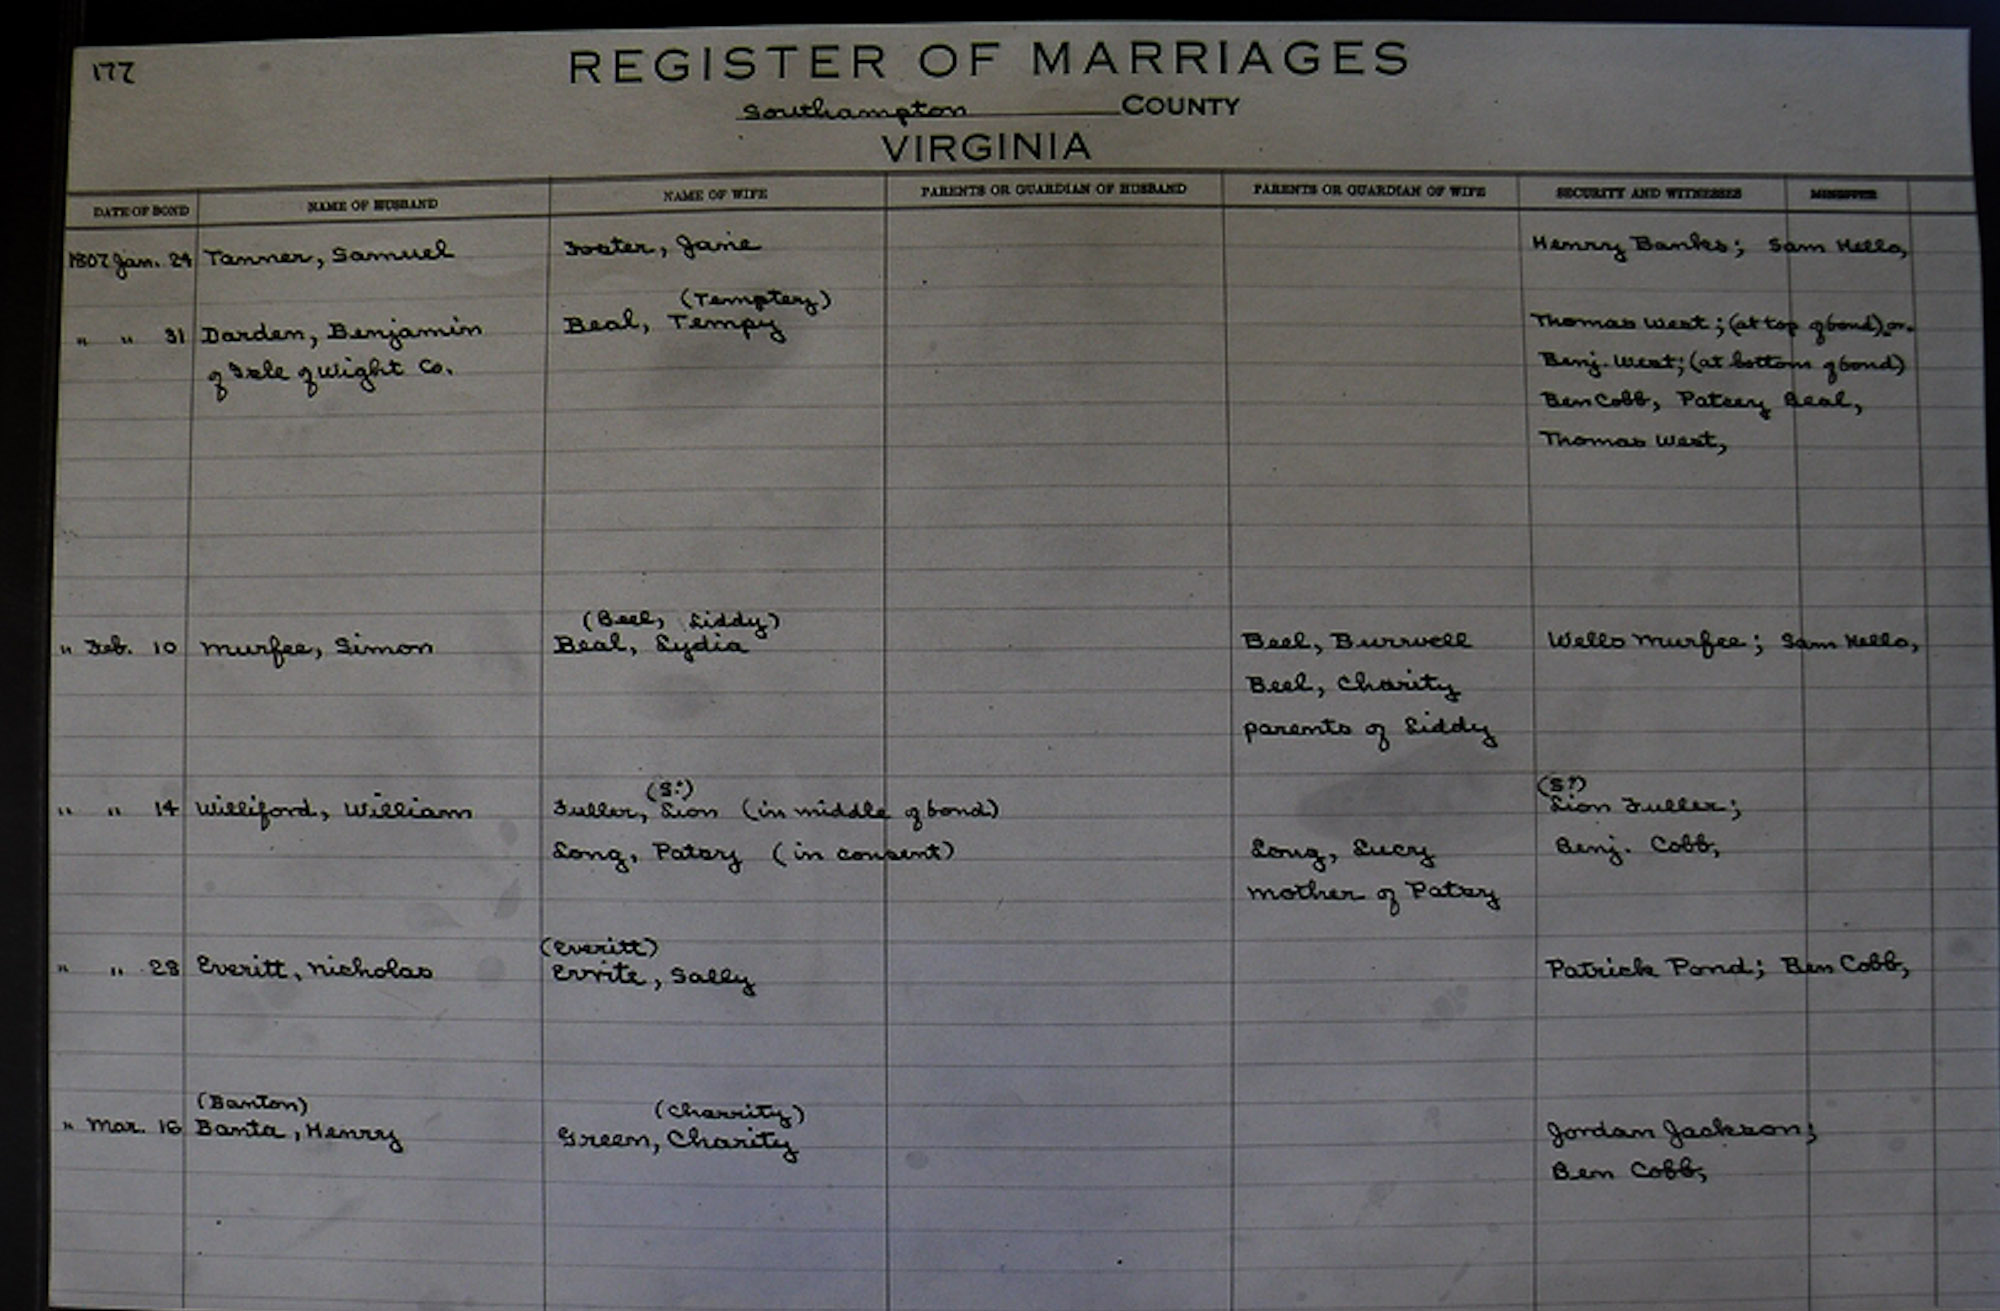 177
REGISTER OF MARRIAGES
Southampton COUNTY
VIRGINIA
DATE OF BOND NAME OF HUSBAND NAME OF WIFE PARENTS OR GUARDIAN OF HUSBAND PARENTS OR GUARDIAN OF WIFE SECURITY AND WITNESSES MINISTER
1807 Jan. 24 Tanner, Samuel Foster, Jane Henry Banks; Sam Kello,
(Temptey)
" " 31 Darden, Benjamin Beal, Tempy Thomas West; (at top of bond) or
of Isle of Wight Co. Benj. West; (at bottom of bond)
Ben Cobb, Patsey Beal,
Thomas West,
(Beel, Liddy)
" Feb. 10 Murfee, Simon Beal, Lydia Beel, Burwell Wells Murfee; Sam Kello,
Beel, Charity
parents of Liddy
(S?) (S?)
" " 14 Williford, William Fuller, Lion (in middle of bond) Lion Fuller;
Long, Patsy (in consent) Long, Lucy Benj. Cobb,
mother of Patsy
(Everitt)
" " 28 Everitt, Nicholas Evrite, Sally Patrick Pond; Ben Cobb,
(Banton) (Charrity)
" Mar. 16 Banta, Henry Green, Charity Jordan Jackson;
Ben Cobb,